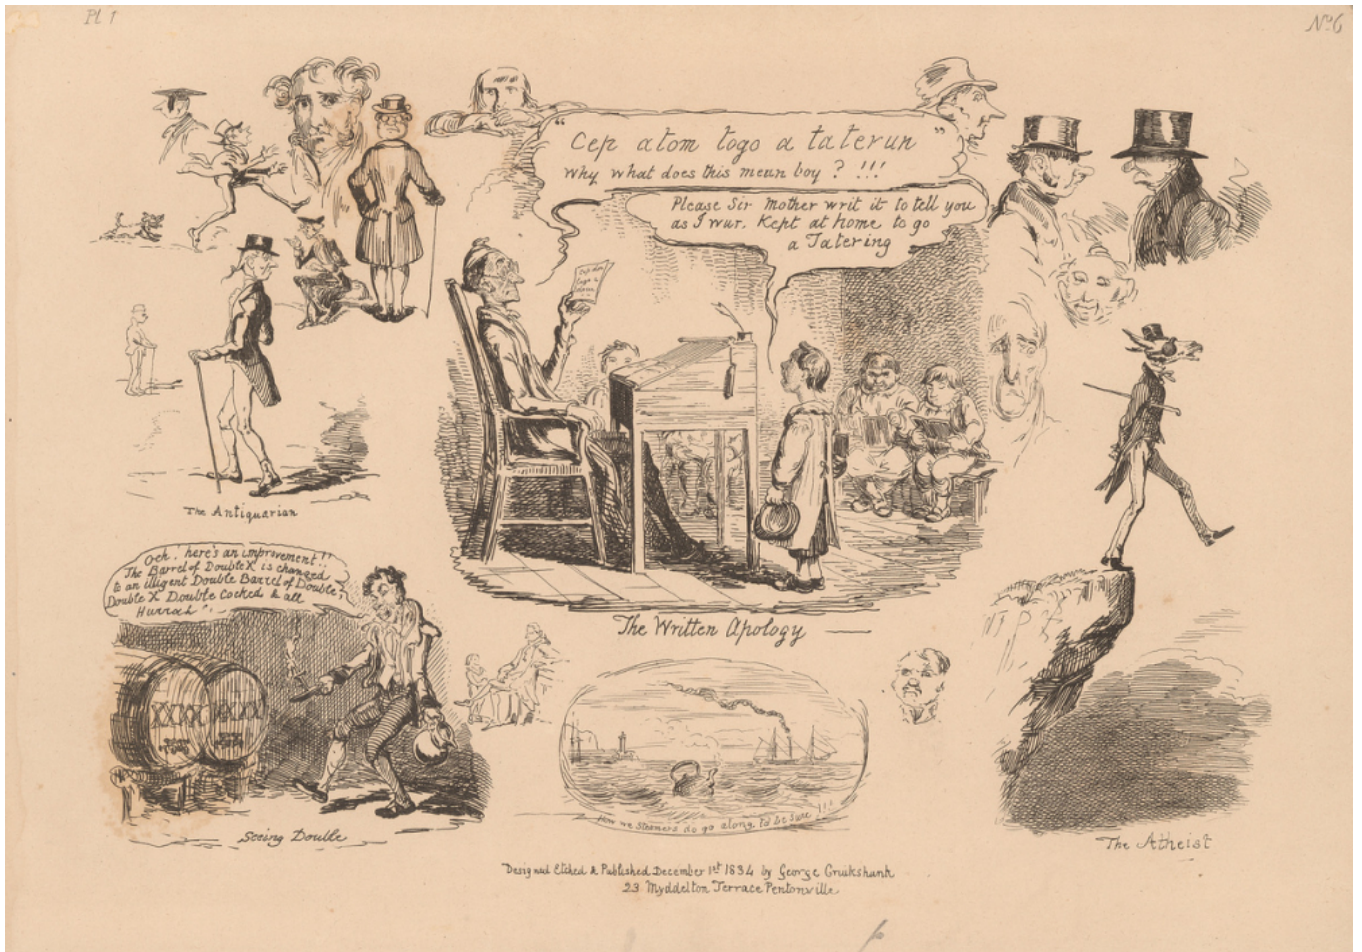 Pl 1
No 6
"Cep atom togo a taterun"
Why what does this mean boy ? !!!
Please Sir Mother writ it to tell you
as I wur. Kept at home to go
a Tatering
Cep atom
togo a
taterun
The Antiquarian
Och! here's an improvement!!
The Barrel of Double X is changed
to an illigent Double Barrel of Double,
Double X Double Cocked & all
Hurrah"!
XXXX XXXX
The Written Apology
Seeing Double
How we Steamers do go along, to be Sure!!!
The Atheist
Designed Etched & Published December 1st 1834 by George Cruikshank
23 Myddelton Terrace Pentonville